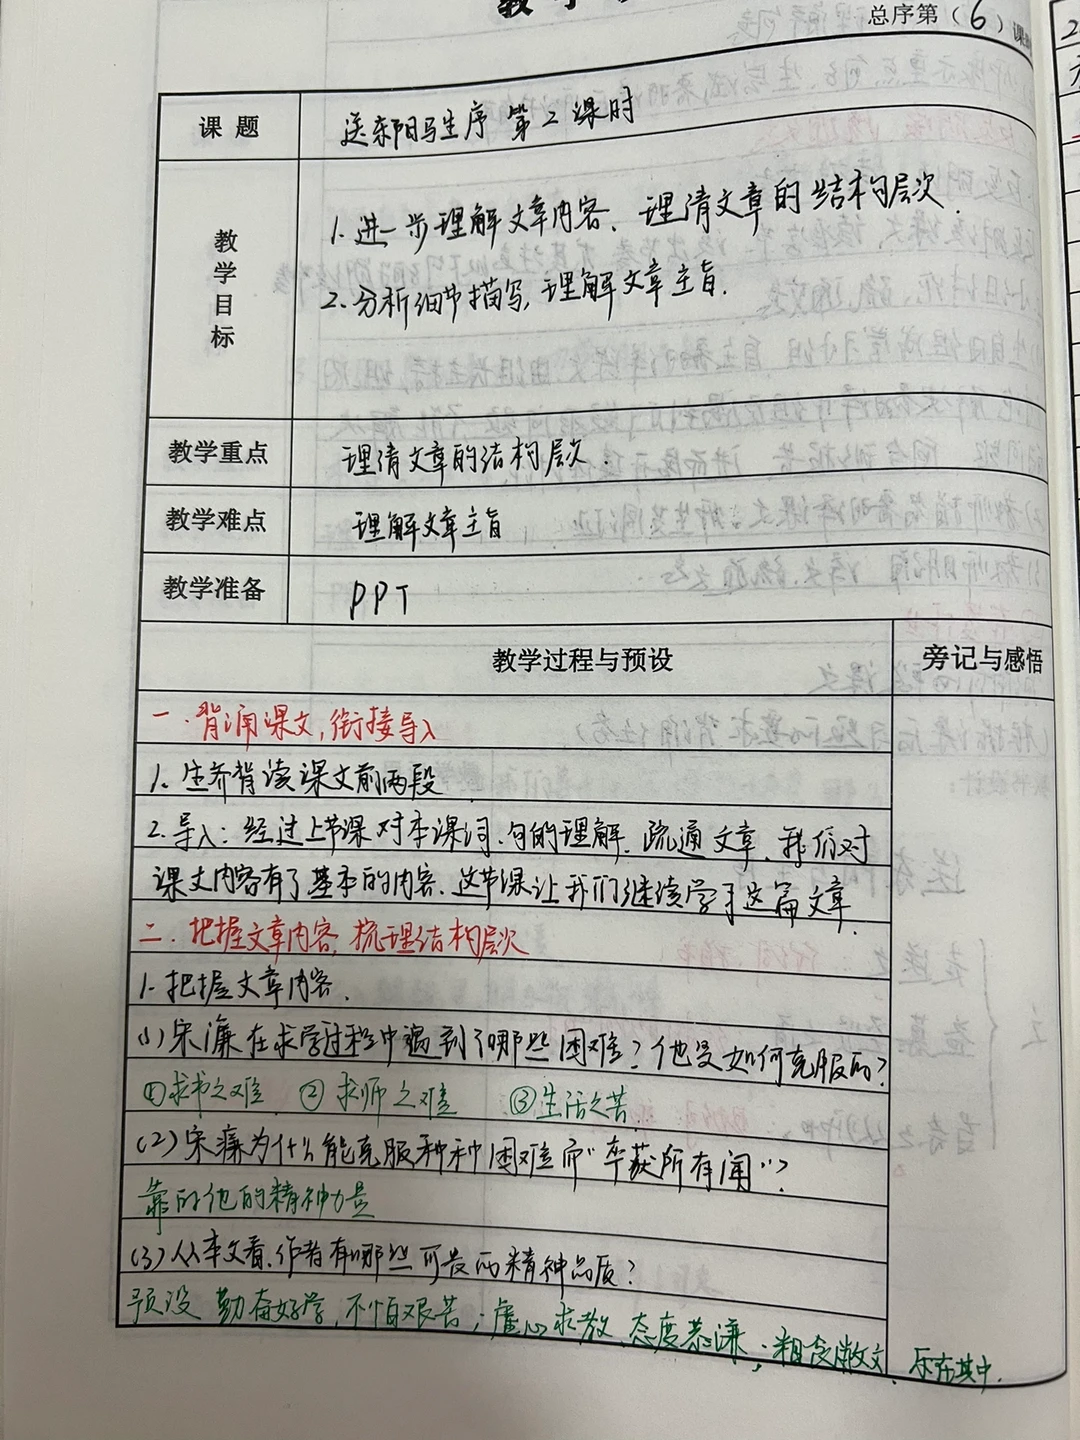 总序第（6）课
课题
送东阳马生序 第2课时
教学目标
1.进一步理解文章内容、理清文章的结构层次.
2.分析细节描写,理解文章主旨.
教学重点
理清文章的结构层次.
教学难点
理解文章主旨
教学准备
PPT
教学过程与预设
旁记与感悟
一.背诵课文,衔接导入
1.生齐背读课文前两段
2.导入:经过上节课对本课词、句的理解、疏通文章、我们对
课文内容有了基本的内容.这节课让我们继续学习这篇文章.
二.把握文章内容,梳理结构层次
1.把握文章内容.
(1)宋濂在求学过程中遇到了哪些困难?他是如何克服的?
①求书之难 ②求师之难 ③生活之苦
(2)宋濂为什么能克服种种困难而“卒获所有闻”?
靠的他的精神力量
(3)从本文看.作者有哪些可贵的精神品质?
预设 勤奋好学,不怕艰苦;虚心求教、态度恭谦;粗食 乐在其中.